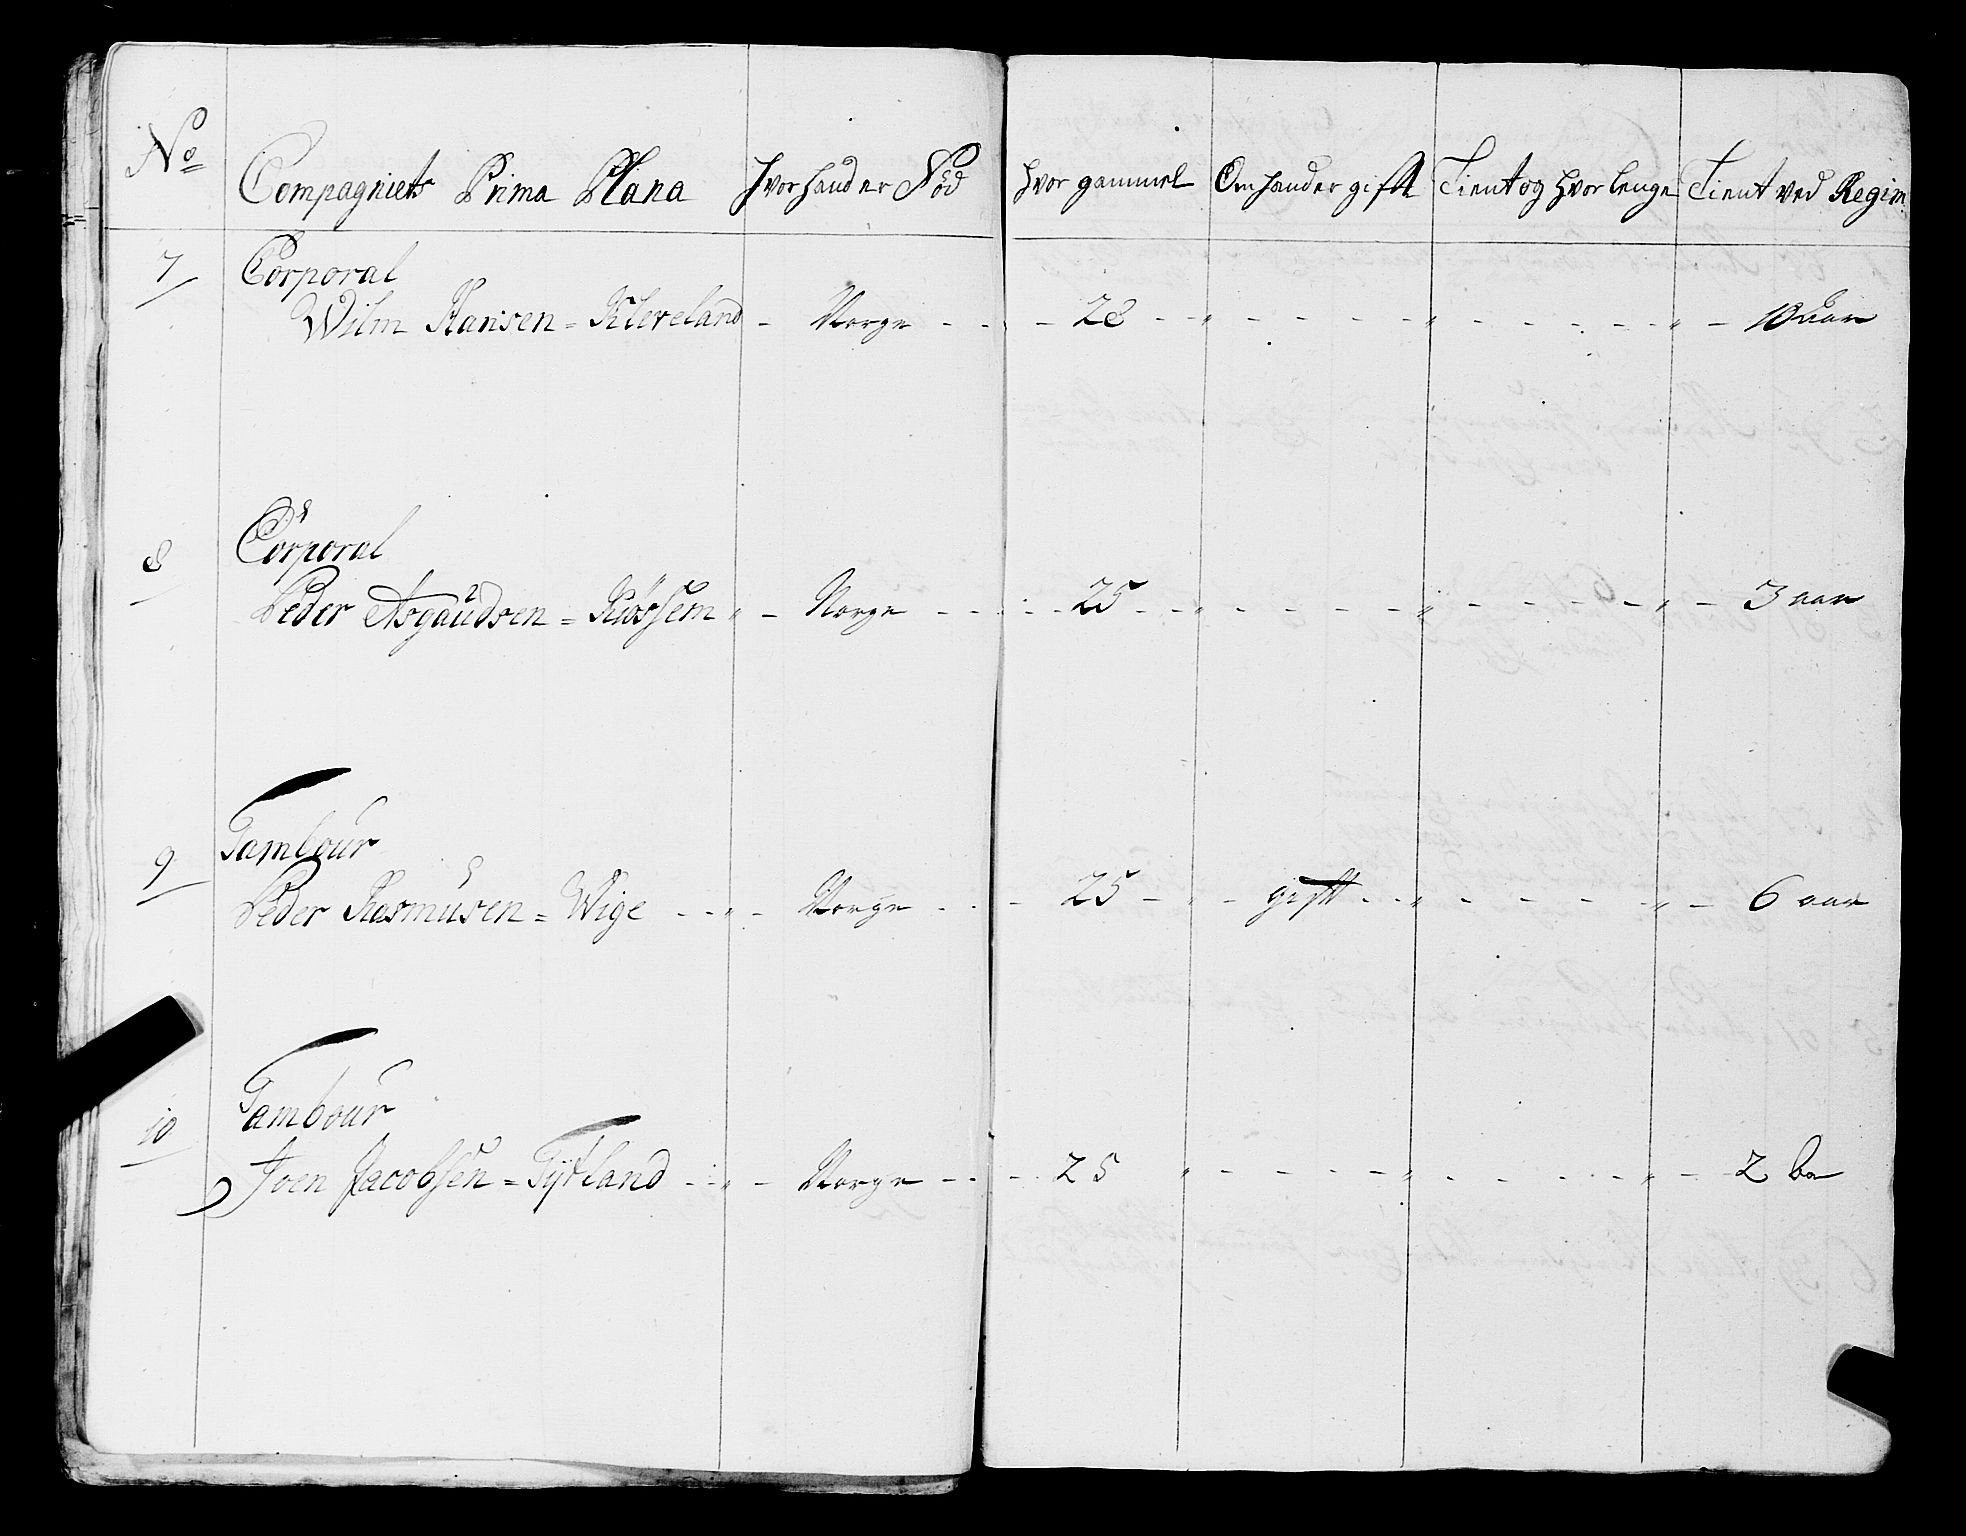 No Compagniets Prima Plana Hvor hand er Föd hvor gammel Om hand er gift Tient og hvor lenge Tient ved Regim:
7 Corporal
Wilm Hansen = Kleveland - Norge - 28 - 10 aar
8 Corporal
Peder Asgaudsen = - Norge - 25 - 3 aar
9 Tambour
Peder Rasmusen = Wige - Norge - 25 - gift - 6 aar
10 Tambour
Joen Jacobsen = Tytland - Norge - 25 - 2